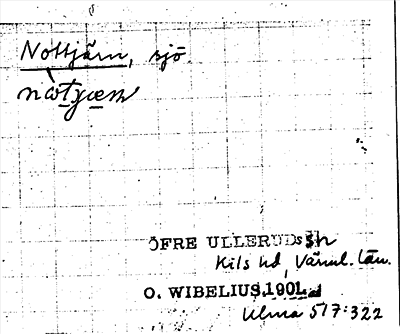 Nottjärn, sjö
ÖFRE ULLERUDS sn
Kils hd, Värml. län.
O. WIBELIUS 1901
Ulma 517:322